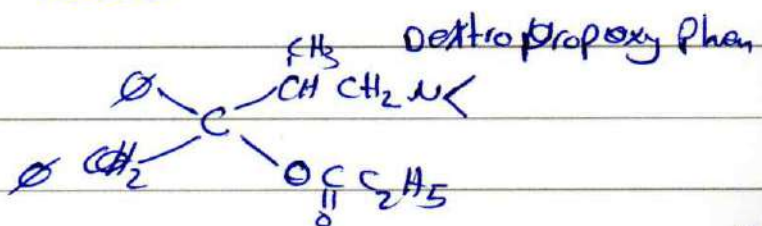 Dextropropoxy Phen
CH3
Ø CH CH2 N<
C
Ø CH2 O C C2H5
O